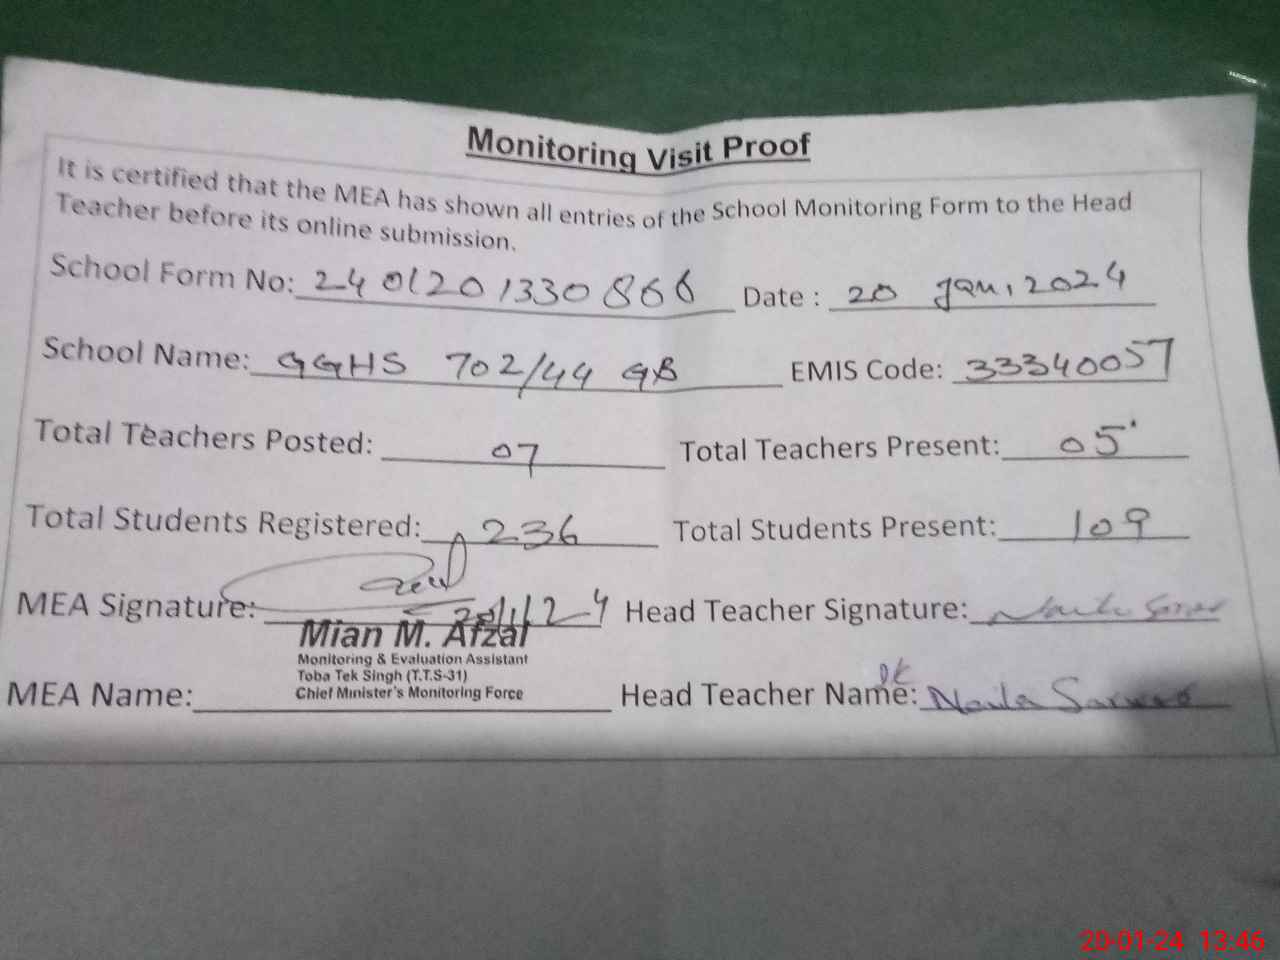 Monitoring Visit Proof
It is certified that the MEA has shown all entries of the School Monitoring Form to the Head
Teacher before its online submission.
School Form No: 2401201330866 Date : 20 Jan, 2024
School Name: GGHS 702/44 GB EMIS Code: 33340057
Total Teachers Posted: 07 Total Teachers Present: 05
Total Students Registered: 236 Total Students Present: 109
MEA Signature: 20/1/24 Head Teacher Signature: Naila Sarwar
Mian M. Afzal
Monitoring & Evaluation Assistant
Toba Tek Singh (T.T.S-31)
Chief Minister's Monitoring Force
MEA Name: Head Teacher Name: Naila Sarwar
20-01-24 13:46